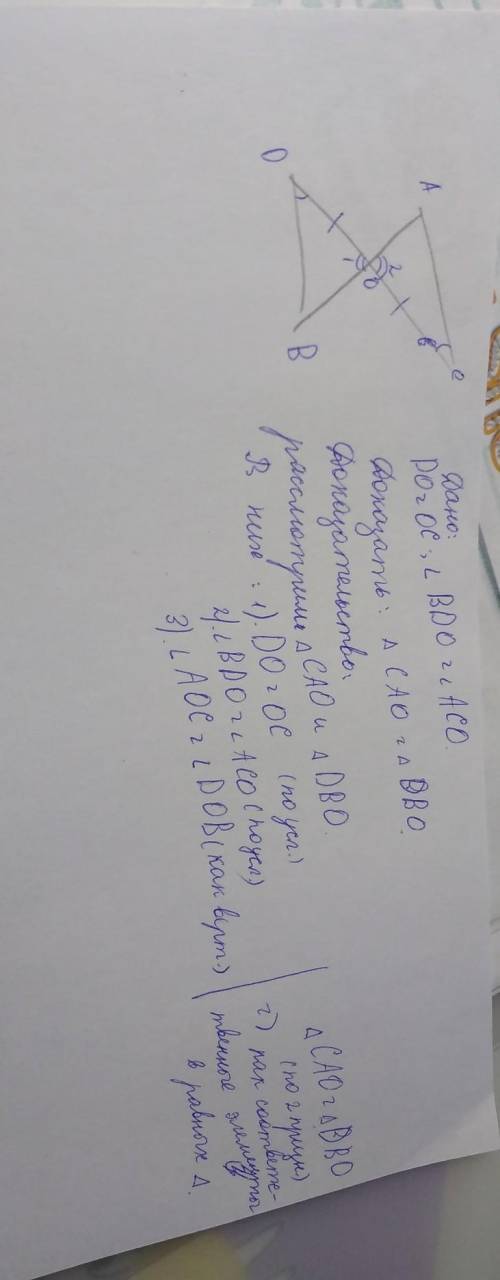 D
A
1
2
O
B
C
Дано:
DO = OC; ∠ BDO = ∠ ACO.
Доказать: △ CAO = △ DBO.
Доказательство:
рассмотрим △ CAO и △ DBO.
В них: 1). DO = OC (по усл.)
2). ∠ BDO = ∠ ACO (по усл)
3). ∠ AOC = ∠ DOB (как верт.)
△ CAO = △ DBO
(по 2 призн)
как соответс-
твенные элементы
в равных △.